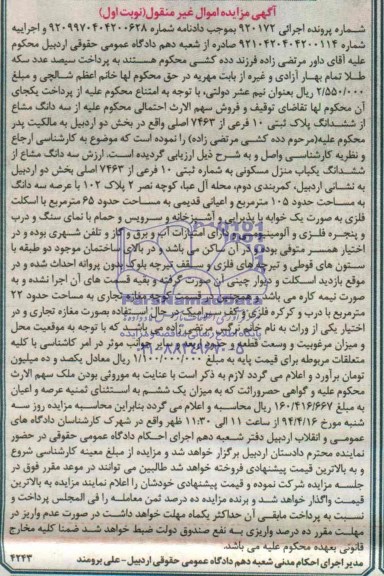 آگهی مزایده اموال غیر منقول(نوبت اول)
شماره پرونده اجرائی ۹۲۰۱۷۲ بموجب دادنامه شماره ۹۲۰۹۹۷۰۴۰۴۲۰۰۶۲۸ و اجراییه
شماره ۹۲۱۰۴۲۰۴۰۴۲۰۰۱۱۴ صادره از شعبه دهم دادگاه عمومی حقوقی اردبیل محکوم
علیه آقای داور مرتضی زاده فرزند دده کشی محکوم هستند به پرداخت سیصد عدد سکه
طلا تمام بهار آزادی و غیره از بابت مهریه در حق محکوم لها خانم اعظم شالچی و مبلغ
۲/۵۵۰/۰۰۰ ریال بعنوان نیم عشر دولتی، با توجه به امتناع محکوم علیه از پرداخت یکجای
آن محکوم لها تقاضای توقیف و فروش سهم الارث احتمالی محکوم علیه از سه دانگ مشاع
از ششدانگ پلاک ثبتی ۱۰ فرعی از ۷۴۶۳ اصلی واقع در بخش دو اردبیل به مالکیت پدر
محکوم علیه(مرحوم دده کشی مرتضی زاده) را نموده است که موضوع به کارشناسی ارجاع
و نظریه کارشناسی واصل و به شرح ذیل ارزیابی گردیده است. ارزش سه دانگ مشاع از
ششدانگ یکباب منزل مسکونی به شماره ثبتی ۱۰ فرعی از ۷۴۶۳ اصلی بخش دو اردبیل
به نشانی اردبیل، کمربندی دوم، محله آل عبا، کوچه نصر ۲ پلاک ۱۰۲ با عرصه سه دانگ
به مساحت حدود ۱۰۵ مترمربع و اعیانی قدیمی به مساحت حدود ۶۵ مترمربع با اسکلت
فلزی به صورت یک خوابه با پذیرایی و آشپزخانه و سرویس و حمام با نمای سنگ و درب
و پنجره فلزی و آلومینیوم دارای امتیازات آب و برق و گاز و تلفن شهری بوده و در
اختیار همسر متوفی بوده و در آن ساکن می باشد و در بالای ساختمان موجود دو طبقه با
ستون های قوطی و تیرچه های فلزی و سقف تیرچه بلوک بدون پروانه احداث شده و در
موقع بازدید اسکلت و دیوار چینی آن صورت گرفته و بقیه قسمت های آن اجرا نشده و به
صورت نیمه کاره می باشد، و همچنین در قسمت مغازه تجاری به مساحت حدود ۲۲
مترمربع با درب و کرکره فلزی و کف سرامیک در حال استفاده بصورت مغازه تجاری و در
اختیار یکی از وراث به نام خانم نرگس مرتضی زاده می باشد که با توجه به موقعیت محل
و میزان مرغوبیت و وسعت قطعه و حدود اربعه و سایر جوانب موثر در امر کارشناسی با کلیه
متعلقات مربوطه برای قیمت پایه به مبلغ ۱/۱۰۰/۰۰۰/۰۰۰ ریال معادل یکصد و ده میلیون
تومان برآورد و اعلام می گردد لازم به ذکر است با عنایت به موروثی بودن ملک سهم الارث
محکوم علیه و گواهی حصروراثت که به میزان یک ششم به استثنای ثمنیه عرصه و اعیان
به مبلغ ۱۶۰/۴۱۶/۶۶۷ ریال محاسبه و اعلام می گردد بنابراین محاسبه مزایده روز سه
شنبه مورخ ۹۴/۴/۱۶ از ساعت ۱۱ الی ۱۱:۳۰ ظهر واقع در شهرک کارشناسان دادگاه های
عمومی و انقلاب اردبیل دفتر شعبه دهم اجرای احکام دادگاه عمومی حقوقی در حضور
نماینده محترم دادستان اردبیل برگزار خواهد شد و مزایده از مبلغ معینه کارشناسی شروع
و به بالاترین قیمت پیشنهادی فروخته خواهد شد طالبین می توانند در موعد مقرر فوق در
جلسه مزایده شرکت نموده و قیمت پیشنهادی خودشان را اعلام نمایند مزایده به بالاترین
قیمت واگذار خواهد شد و برنده مزایده ده درصد ثمن معامله را فی المجلس پرداخت و
نسبت به پرداخت مابقی آن حداکثر یکماه مهلت خواهد داشت در صورت عدم واریز در
مهلت مقرر ده درصد واریزی به نفع صندوق دولت ضبط خواهد شد ضمنا کلیه مخارج
قانونی بعهده محکوم علیه می باشد.
مدیر اجرای احکام مدنی شعبه دهم دادگاه عمومی حقوقی اردبیل - علی برومند ۴۲۴۳